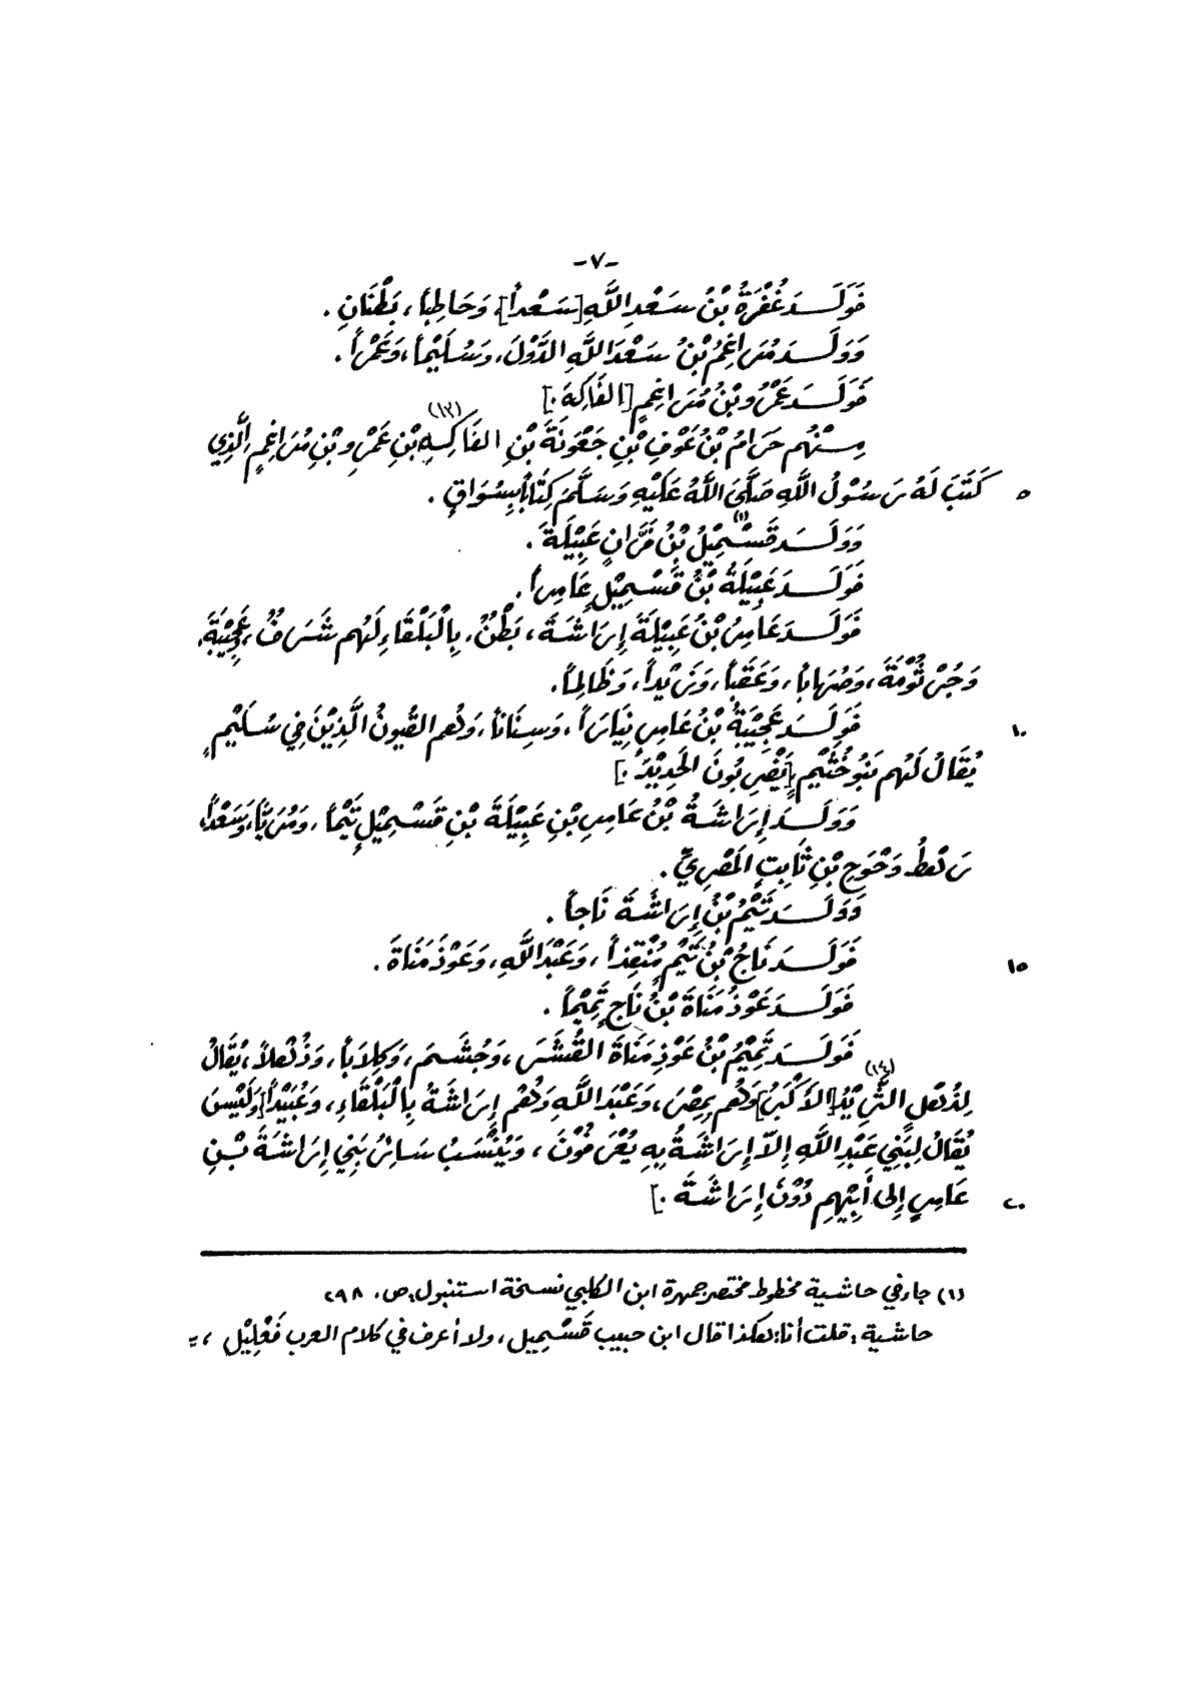 -٧-
فَوَلَدَ غُفْرَةُ بْنُ سَعْدِ اللَّهِ [سَعْداً]، وَحَاطِباً، بَطْنَانِ .
وَوَلَدَ مُرَاغِمُ بْنُ سَعْدِ اللَّهِ الدَّوْلَ، وَسُلَيْماً، وَعَمْراً .
فَوَلَدَ عَمْرُو بْنُ مُرَاغِمٍ [الفَاكِهَ .]
مِنْهُم حَرَامُ بْنُ عَوْفِ بْنِ جَعْوَنَةَ بْنِ الفَاكِهِ (١٣) بْنِ عَمْرِو بْنِ مُرَاغِمٍ الَّذِي
٥ كَتَبَ لَهُ رَسُوْلُ اللَّهِ صَلَّى اللَّهُ عَلَيْهِ وَسَلَّمَ كِتَاباً بِسُوَاقٍ .
وَوَلَدَ قَسْمِيْلُ (١) بْنُ فَرَّانٍ عَبِيْلَةَ .
فَوَلَدَ عَبِيْلَةُ بْنُ قَسْمِيْلٍ عَامِراً .
فَوَلَدَ عَامِرُ بْنُ عَبِيْلَةَ إِرَاشَةَ، بَطْنٌ، بِالْبَلْقَاءِ لَهُم شَرَفٌ، وَعَجِيْبَةَ،
وَجُرْثُوْمَةَ، وَصُهَاباً، وَعَقَباً، وَزَيْداً، وَظَالِماً .
١٠ فَوَلَدَ عَجِيْبَةُ بْنُ عَامِرٍ نِيَاراً، وَسِنَاناً، وَهُم القُيونُ الَّذِيْنَ فِي سُلَيْمٍ
يُقَالُ لَهُم بَنُو خُثَيْمٍ [يَضْرِبُونَ الحَدِيْدَ .]
وَوَلَدَ إِرَاشَةُ بْنُ عَامِرِ بْنِ عَبِيْلَةَ بْنِ قَسْمِيْلٍ تَيْماً، وَمُرَيّاً، وَسَعْداً،
رَهْطُ وَحْوَحِ بْنِ ثَابِتٍ المَصْرِيِّ .
وَوَلَدَ تَيْمُ بْنُ إِرَاشَةَ نَاجاً .
١٥ فَوَلَدَ نَاجُ بْنُ تَيْمٍ مُنْقِذاً، وَعَبْدَ اللَّهِ، وَعَوْذَ مَنَاةَ .
فَوَلَدَ عَوْذُ مَنَاةَ بْنُ نَاجٍ تَمِيْماً .
فَوَلَدَ تَمِيْمُ بْنُ عَوْذِ مَنَاةَ القُشَرَ، وَجُشَمَ، وَكِلَاباً، وَذُهْلاً، يُقَالُ
لِذُهْلٍ الثَّرِيْدُ [الأَكْبَرُ] (١٤) وَهُم بِمِصْرَ، وَعَبْدَ اللَّهِ وَهُم إِرَاشَةُ بِالْبَلْقَاءِ، وَعُبَيْداً [وَلَيْسَ
يُقَالُ لِبَنِي عَبْدِ اللَّهِ إِلاَّ إِرَاشَةُ بِهِ يُعْرَفُوْنَ، وَيُنْسَبُ سَائِرُ بَنِي إِرَاشَةَ بْنِ
٢٠ عَامِرٍ إِلى أَبِيْهِمِ دُوْنَ إِرَاشَةَ .]
(١) جاء في حاشية مخطوط مختصر جمهرة ابن الكلبي نسخة استنبول، ص، ٢٩٨
حاشية : قلت أنا: هكذا قال ابن حبيب قَسْمِيل، ولا أعرف في كلام العرب فَعْلِيْل، =